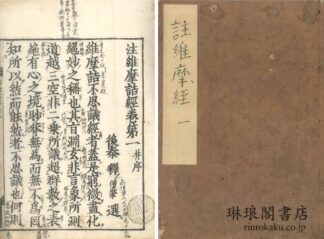 注維摩詰經卷第一并序
後秦釋僧肇選
維摩詰不思議經者蓋是窮微盡化
絕妙之稱也其旨淵玄非言象所測
道越三空非二乘所議超群數之表
絕有心之境眇莽無為而無不為罔
知所以然而能然者不思議也何則
註維摩經 一
琳琅閣書店
rinrokaku.co.jp